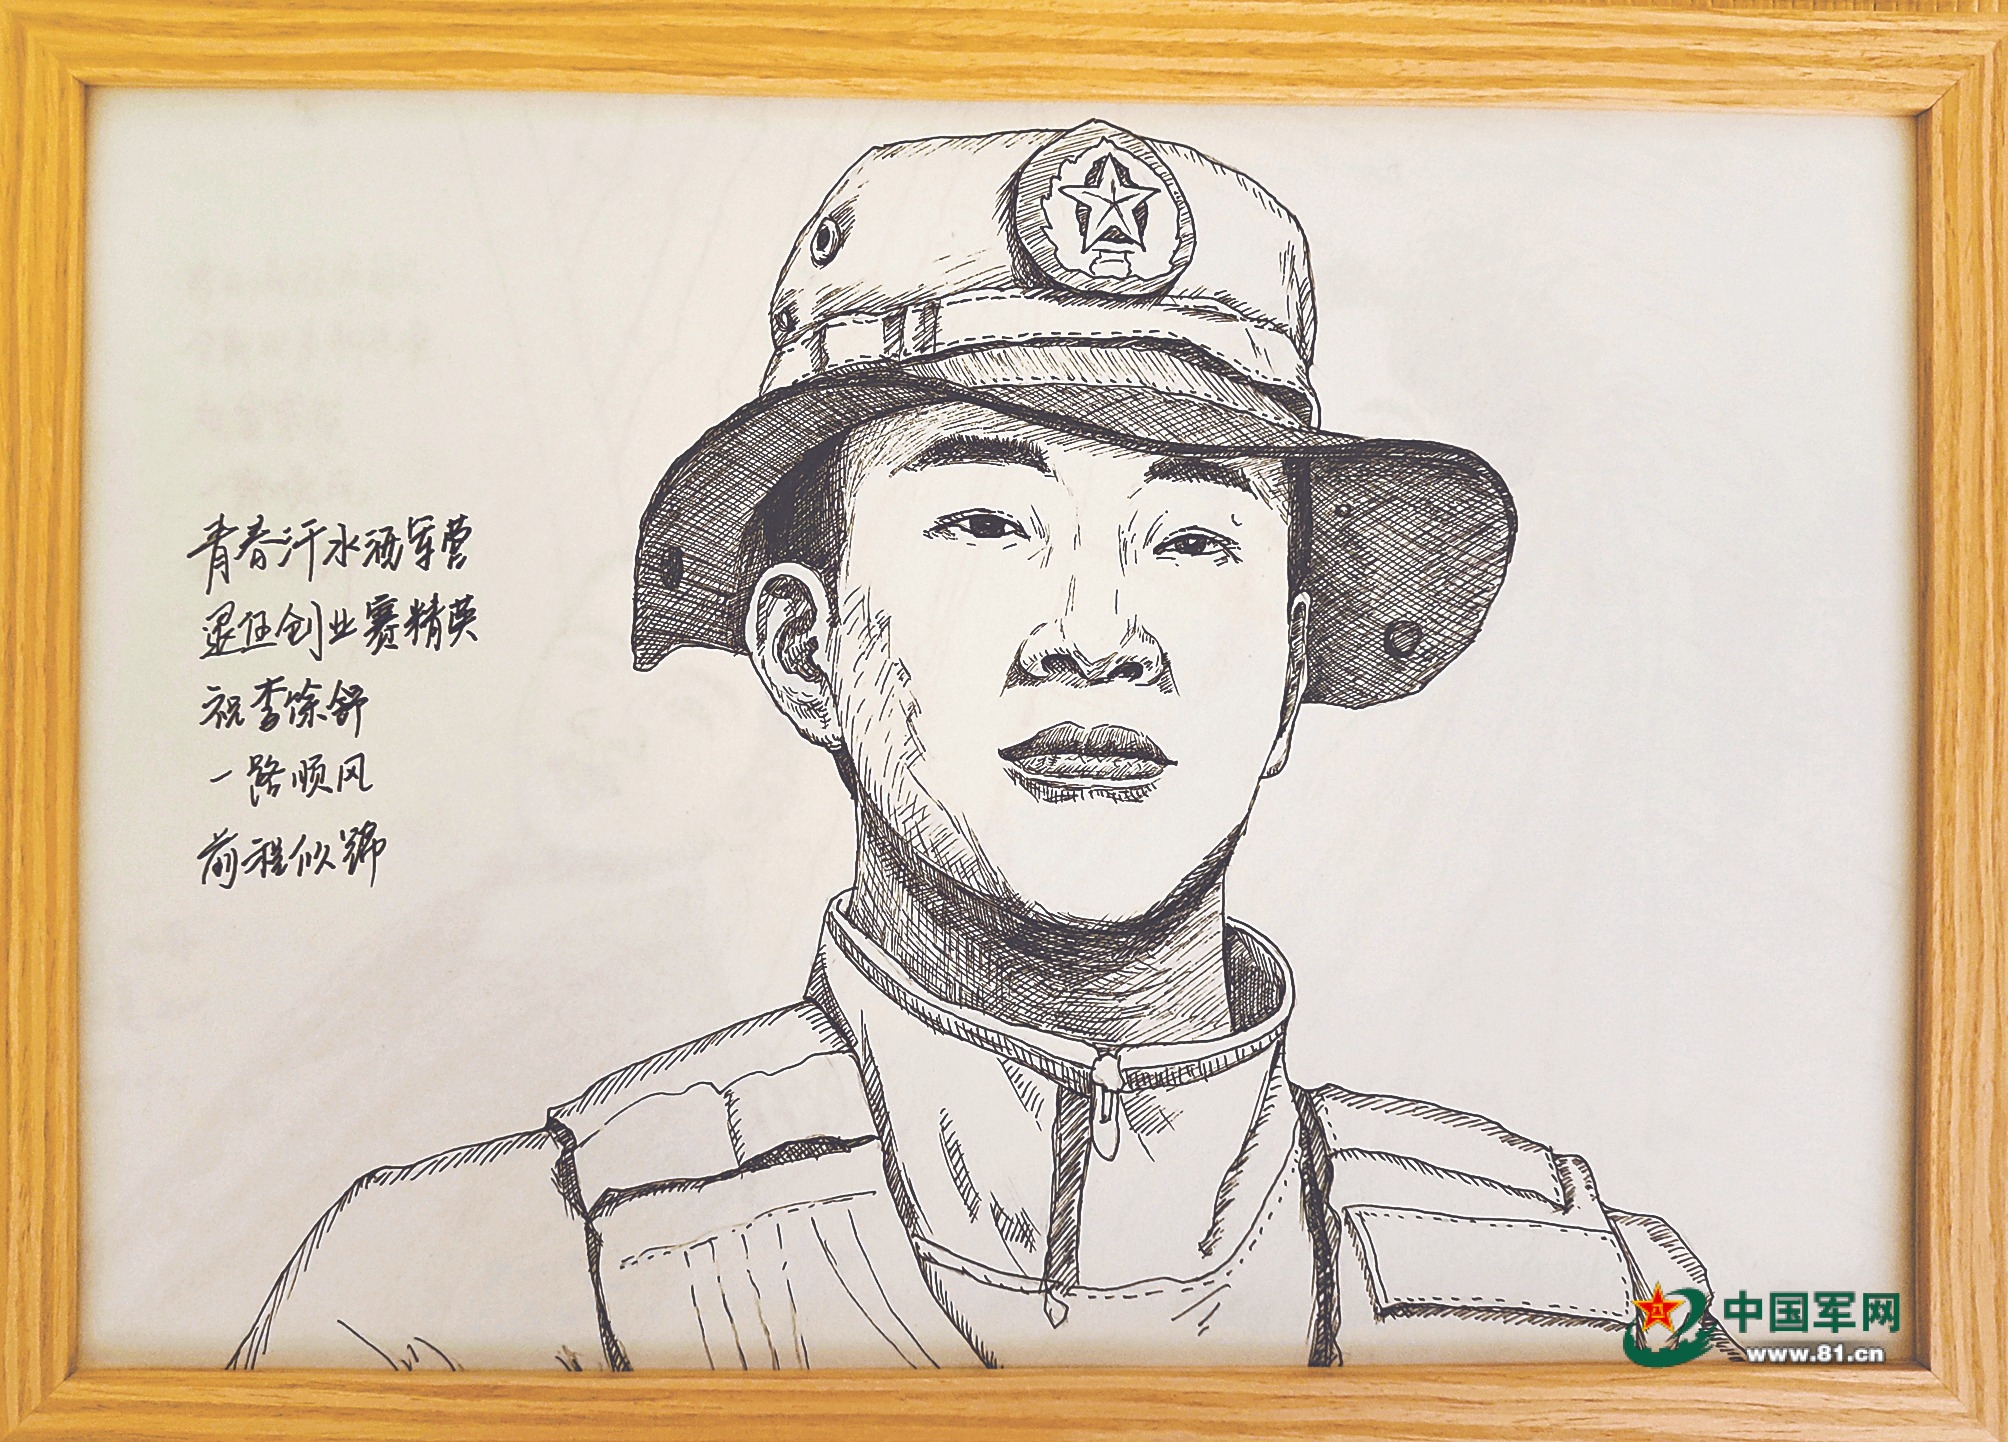 青春汗水洒军营
退伍创业赛精英
祝李馀舒
一路顺风
前程似锦
中国军网
www.81.cn